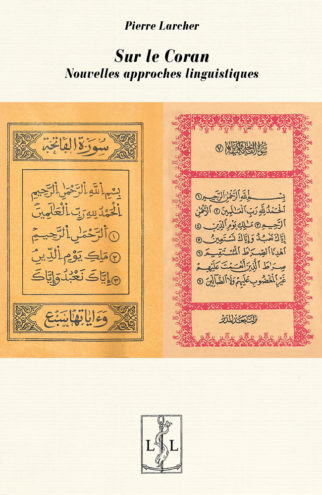 Pierre Larcher
Sur le Coran
Nouvelles approches linguistiques
سورة الفاتحة
بسم الله الرحمن الرحيم
الحمد لله رب العالمين
① الرحمن الرحيم
② ملك يوم الدين
③ إياك نعبد وإياك
وءاياتها سبع
سورة الفاتحة
بسم الله الرحمن الرحيم
الحمد لله رب العالمين الرحمن
الرحيم ملك يوم الدين
إياك نعبد وإياك نستعين
اهدنا الصراط المستقيم
صراط الذين أنعمت عليهم
غير المغضوب عليهم ولا الضالين
L L